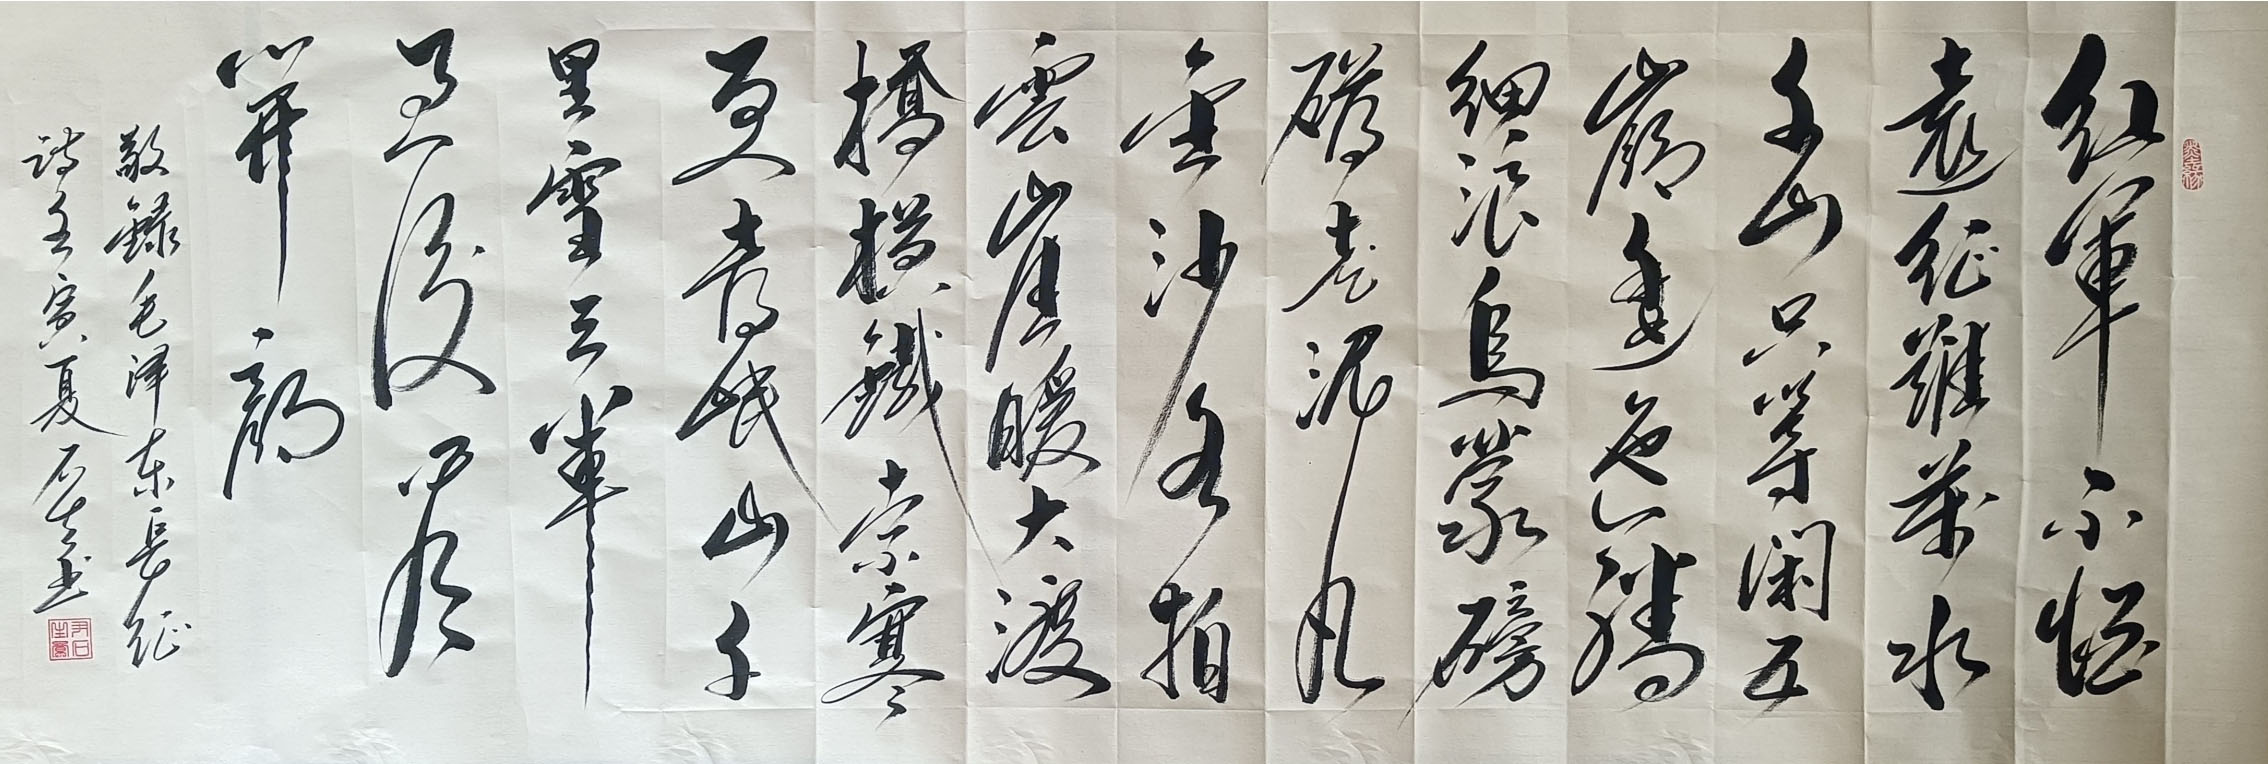 红軍不怕
遠征難萬水
千山只等闲五
嶺逶迤腾
细浪烏蒙磅
礴走泥丸
金沙水拍
雲崖暖大渡
橋横鐵索寒
更喜岷山千
里雪三軍
过後尽
開颜
敬録毛泽东長征
诗壬寅夏石生书